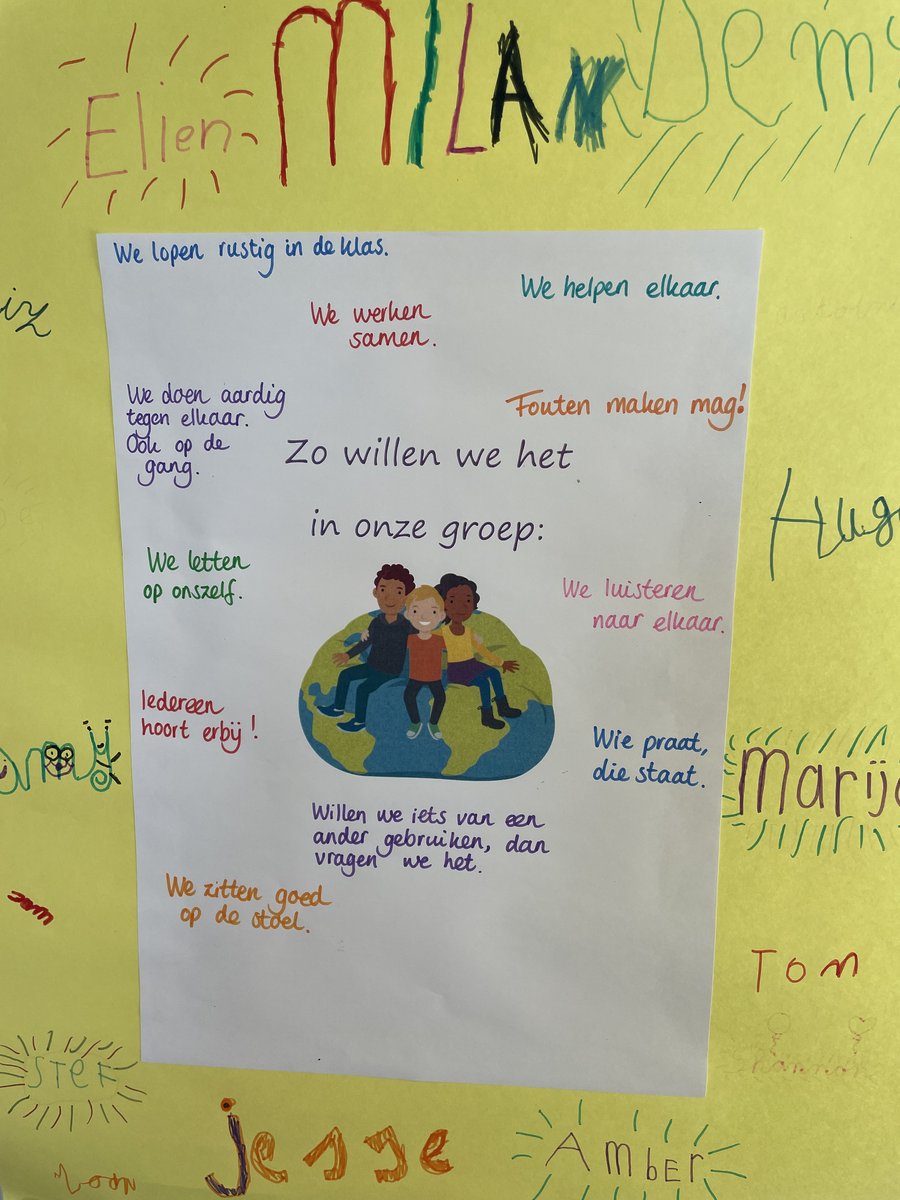 Elien
MILAN
Demi
We lopen rustig in de klas.
We helpen elkaar.
We werken
samen.
We doen aardig
tegen elkaar.
Ook op de
gang.
Fouten maken mag!
Zo willen we het
in onze groep:
We letten
op onszelf.
We luisteren
naar elkaar.
Iedereen
hoort erbij!
Wie praat,
die staat.
Willen we iets van een
ander gebruiken, dan
vragen we het.
We zitten goed
op de stoel.
Tom
Stef
Jesse
AmbEr